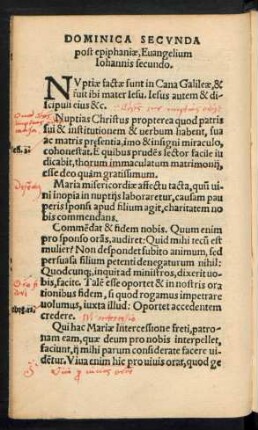 DOMINICA SECVNDA
post epiphaniæ, Euangelium
Iohannis secundo.
NVptiæ factæ sunt in Cana Galileæ, &
fuit ibi mater Iesu. Iesus autem & di
scipuli eius &c.
Nuptias Christus propterea quod patris
sui & institutionem & uerbum habent, sua
ac matris præsentia, imo & insigni miraculo,
cohonestat. E quibus prudēs lector facile iu
dicabit, thorum immaculatum matrimonij,
esse deo quàm gratissimum.
Maria misericordiæ affectu tacta, quū ui
ni inopia in nuptijs laboraretur, causam pau
peris sponsi apud filium agit, charitatem no
bis commendans.
Commēdat & fidem nobis. Quum enim
pro sponso orās, audiret: Quid mihi tecū est
mulier? Non despondet subito animum, sed
persuasa filium petenti denegaturum nihil:
Quodcunqȝ, inquit ad ministros, dixerit uo-
bis, facite. Talē esse oportet & in nostris ora
tionibus fidem, si quod rogamus impetrare
uolumus, iuxta illud: Oportet accedentem
credere.
Qui hac Mariæ intercessione freti, patro-
nam eam, quæ deum pro nobis interpellet,
faciunt, ij mihi parum considerate facere ui-
dētur. Viua enim hic pro uiuis orat, quod ge